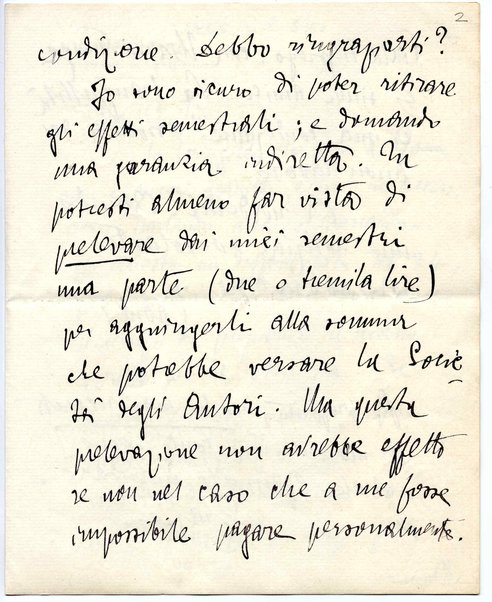 2
condizione. Debbo ringraziarti?
Io sono sicuro di poter ritirare
gli effetti semestrali; e domando
una garanzia indiretta. Tu
potresti almeno far vista di
prelevare dai miei semestri
una parte (due o tremila lire)
per aggiungerli alla somma
che potrebbe versare la Socie-
tà degli Autori. Ma questa
prelevazione non avrebbe effetto
se non nel caso che a me fosse
impossibile pagare personalmente.